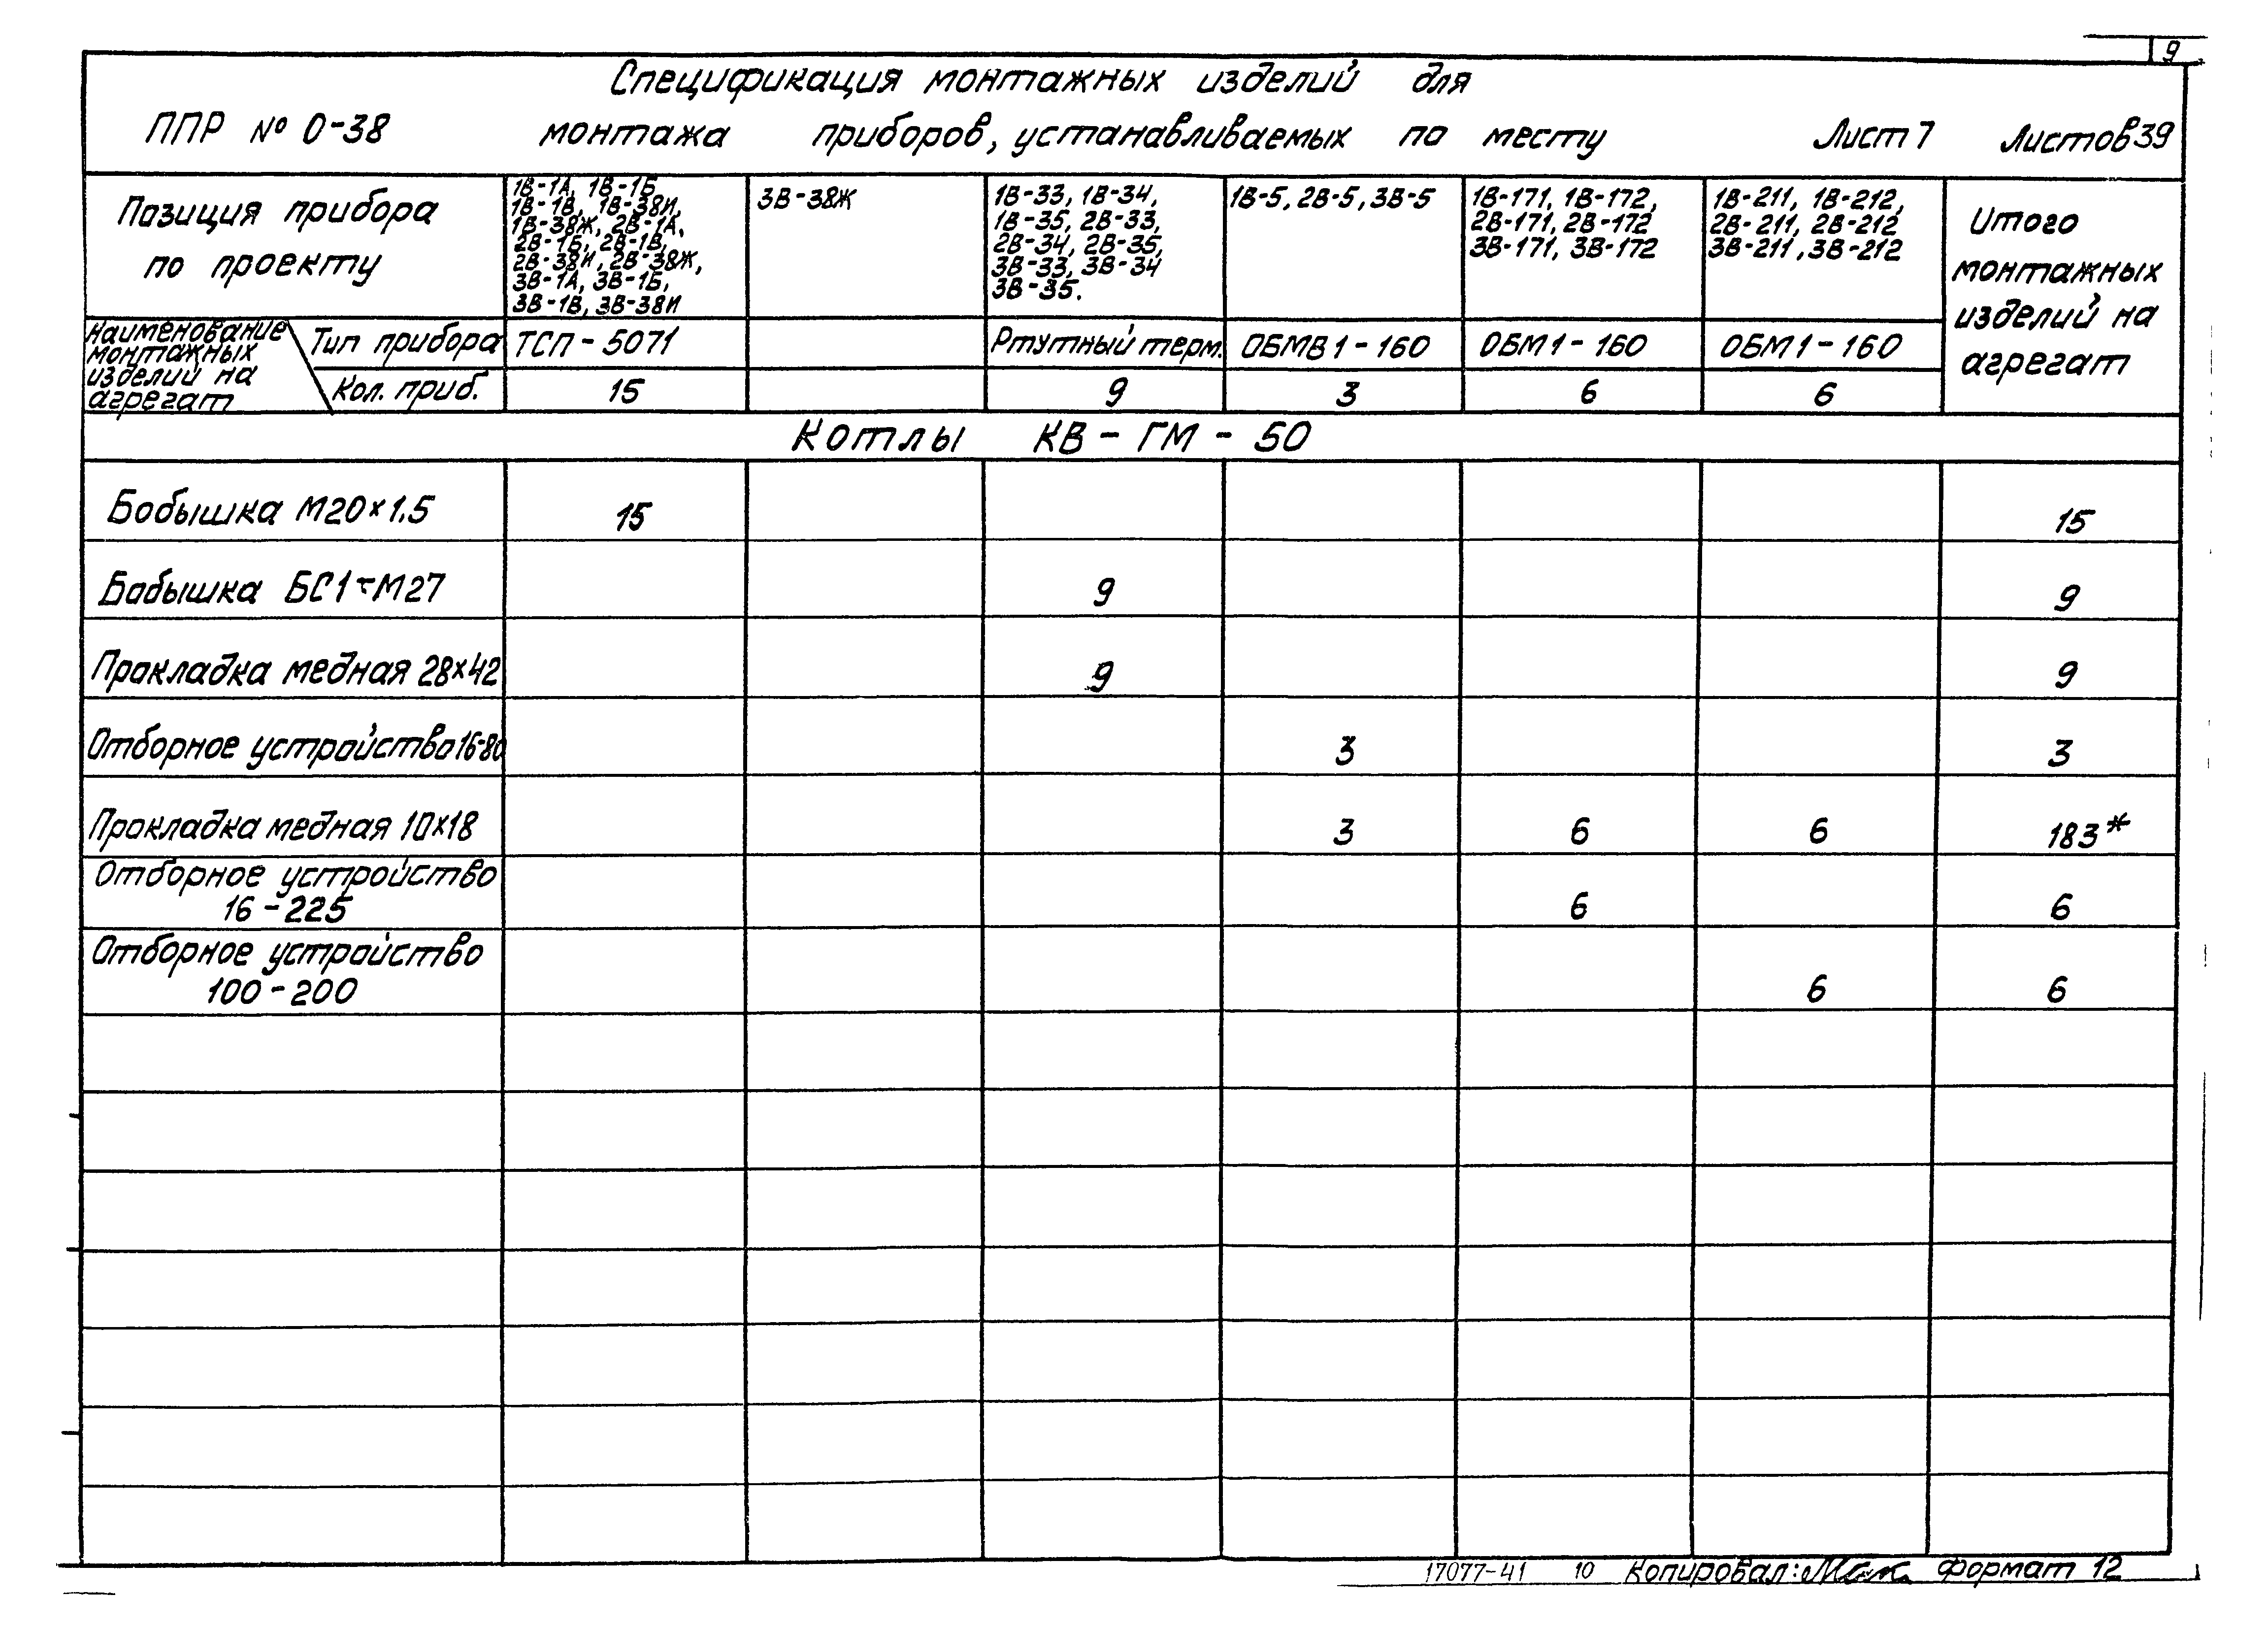 9
Спецификация монтажных изделий для
ППР № О-38 монтажа приборов, устанавливаемых по месту Лист 7 Листов 39
Позиция прибора
по проекту
1В-1А, 1В-1Б,
1В-1В, 1В-38И,
1В-38Ж, 2В-1А,
2В-1Б, 2В-1В,
2В-38И, 2В-38Ж,
3В-1А, 3В-1Б,
3В-1В, 3В-38И
3В-38Ж
1В-33, 1В-34,
1В-35, 2В-33,
2В-34, 2В-35,
3В-33, 3В-34
3В-35.
1В-5, 2В-5, 3В-5
1В-171, 1В-172,
2В-171, 2В-172
3В-171, 3В-172
1В-211, 1В-212,
2В-211, 2В-212
3В-211, 3В-212
Итого
монтажных
изделий на
агрегат
Наименование
монтажных
изделий на
агрегат
Тип прибора ТСП-5071 Ртутный терм. ОБМВ1-160 ОБМ1-160 ОБМ1-160
Кол. приб. 15 9 3 6 6
Котлы КВ-ГМ-50
Бобышка М20×1.5 15 15
Бобышка БС1-М27 9 9
Прокладка медная 28×42 9 9
Отборное устройство 16-80 3 3
Прокладка медная 10×18 3 6 6 183*
Отборное устройство
16-225 6 6
Отборное устройство
100-200 6 6
17077-41 10 Копировал: Формат 12